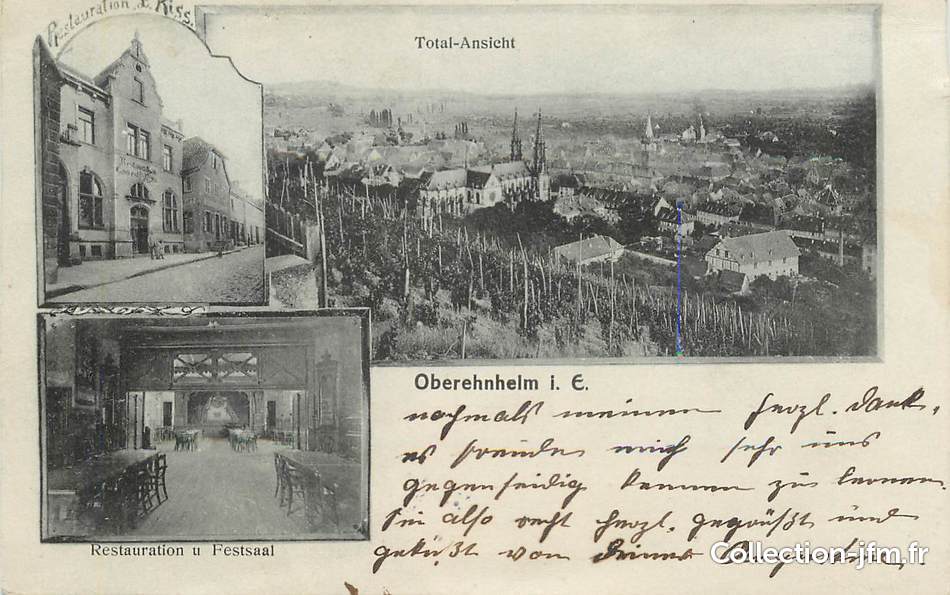 Restauration X. Kiss.
Total-Ansicht
Oberehnheim i. E.
nochmals meinen herzl. Dank,
es freudes mich sehr uns
gegenseidig kennen zu lernen.
Sei also recht herzl. gegrüßt und
geküßt von Deiner
Restauration u Festsaal
Collection-jfm.fr